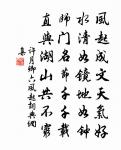 風起成文天氣好
水清如鏡地如鍾
師門名節千千載
直與湖山共不窮
許月卿六風起詞典網
集